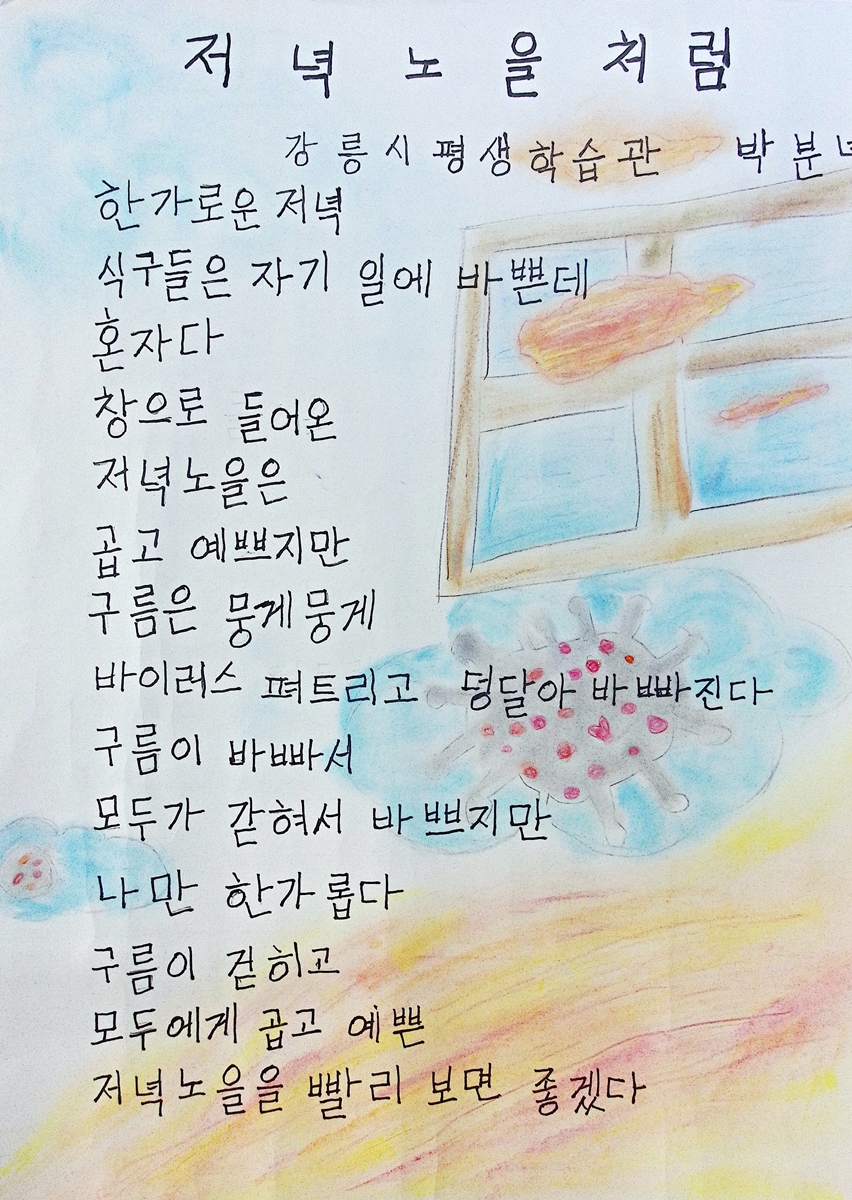 저녁노을처럼
강릉시평생학습관 박분
한가로운 저녁
식구들은 자기 일에 바쁜데
혼자다
창으로 들어온
저녁노을은
곱고 예쁘지만
구름은 뭉게뭉게
바이러스 펴트리고 덩달아 바빠진다
구름이 바빠서
모두가 갇혀서 바쁘지만
나만 한가롭다
구름이 걷히고
모두에게 곱고 예쁜
저녁노을을 빨리 보면 좋겠다